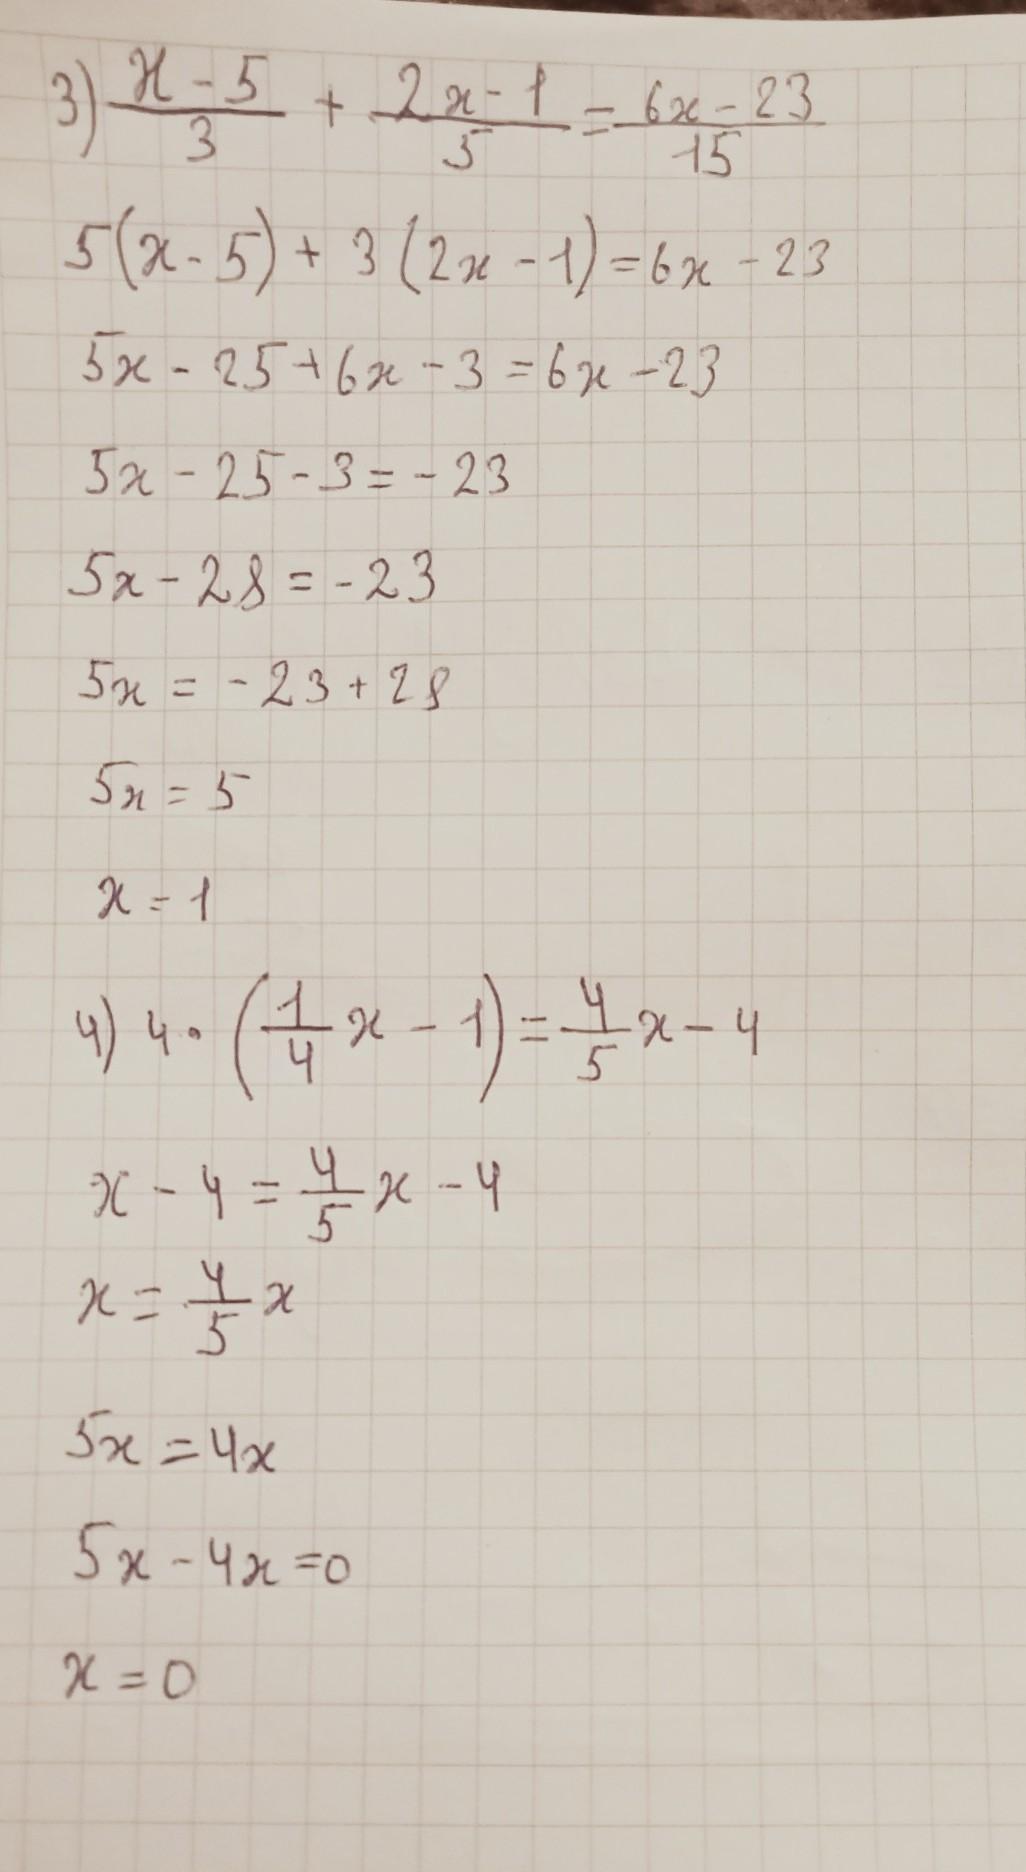 3) x - 5 / 3 + 2x - 1 / 5 = 6x - 23 / 15
5(x - 5) + 3(2x - 1) = 6x - 23
5x - 25 + 6x - 3 = 6x - 23
5x - 25 - 3 = - 23
5x - 28 = - 23
5x = - 23 + 28
5x = 5
x = 1
4) 4 · (1/4 x - 1) = 4/5 x - 4
x - 4 = 4/5 x - 4
x = 4/5 x
5x = 4x
5x - 4x = 0
x = 0